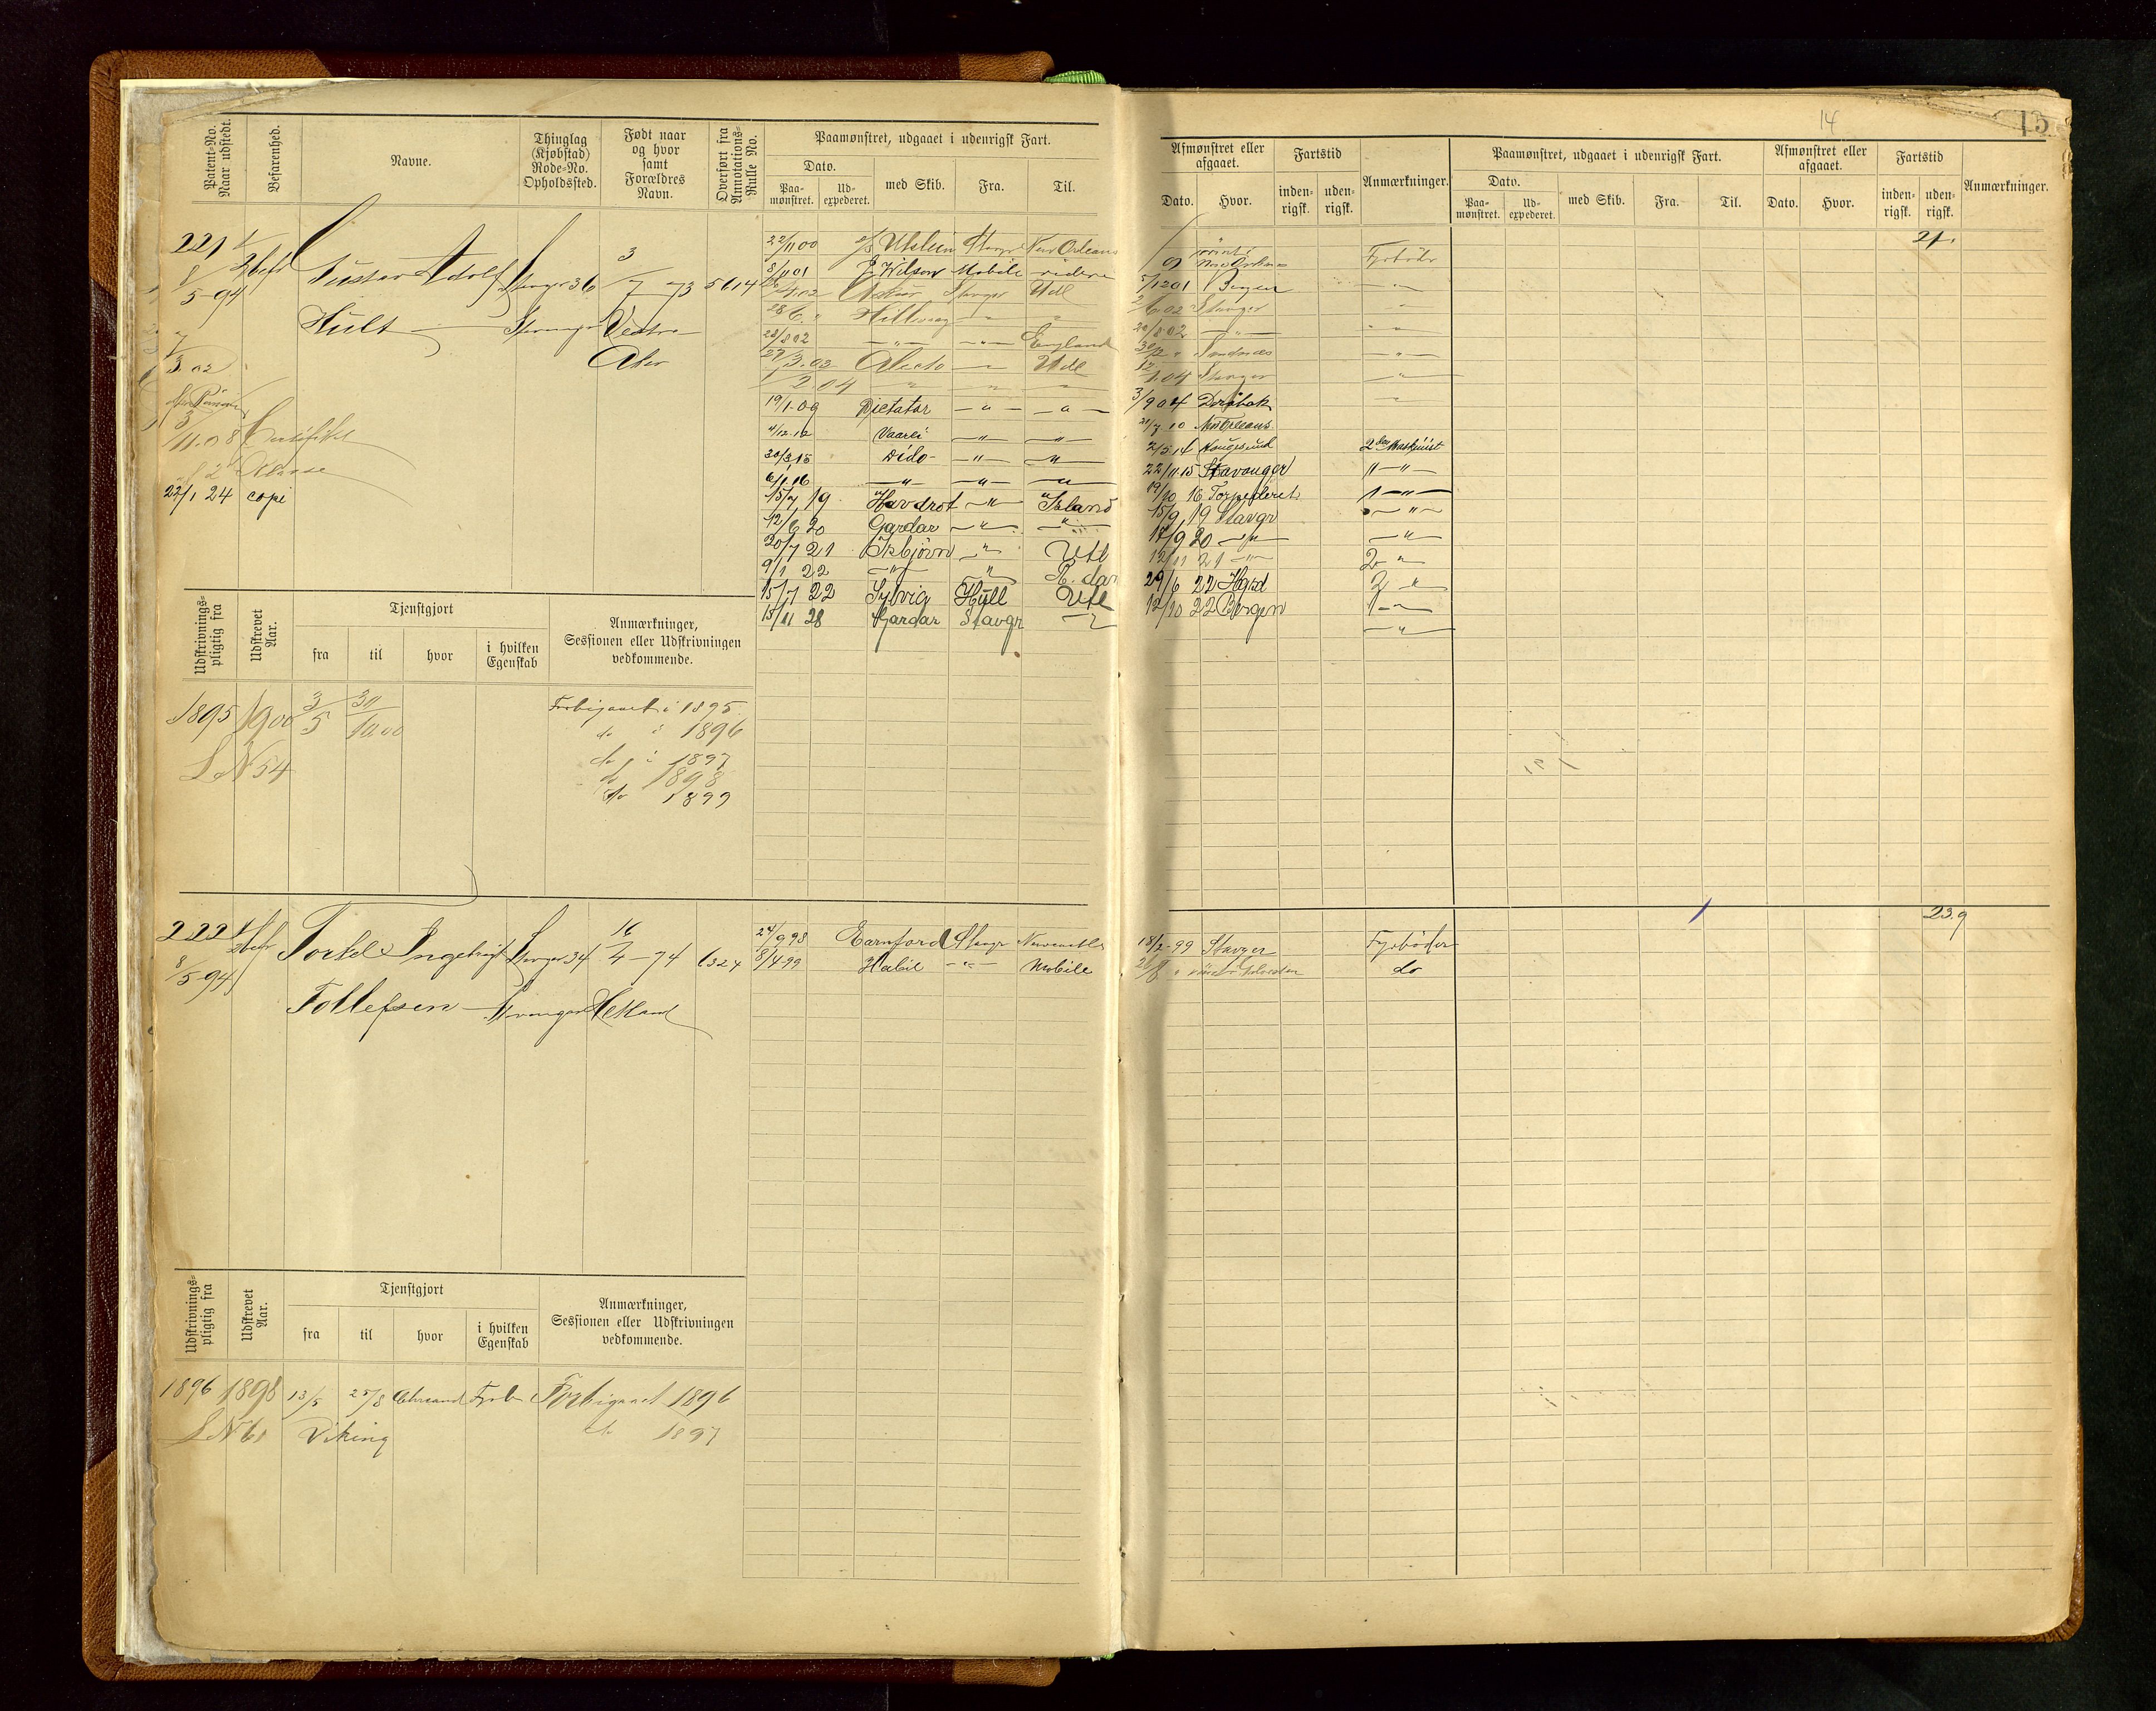 14
15
Patent-No. Naar udstedt.
Befarenhed.
Navne.
Thinglag (Kjøbstad) Rode-No. Opholdssted.
Født naar og hvor samt Forældres Navn.
Overført fra Annotations-Rulle No.
Paamønstret, udgaaet i udenrigsk Fart.
Dato.
Paa-mønstret.
Ud-expederet.
med Skib.
Fra.
Til.
Afmønstret eller afgaaet.
Dato.
Hvor.
Fartstid
inden-rigsk.
uden-rigsk.
Anmærkninger.
Paamønstret, udgaaet i udenrigsk Fart.
Dato.
Paa-mønstret.
Ud-expederet.
med Skib.
Fra.
Til.
Afmønstret eller afgaaet.
Dato.
Hvor.
Fartstid
inden-rigsk.
uden-rigsk.
Anmærkninger.
221
8/5-94
Gustav Adolf
Hult
Stavanger
36
3/7 73
Vestre
Aker
5614
21.
7/3 02
3/11.08 Certifikat
2 Klasse
22/1 24 copi
22/11 00 Utstein Stavgr New Orleans
8/11 01 J. Wilson Mobile
Stavger Udl
28/6 " Hillevaag
23/8 02 —"— —"— England
27/3.03 Alecto — Udl
2 04 " " "
19/1.09 Dictator —"— —"—
4/12.12 Vaarli —"— —"—
30/3.15 Dido —"— —"—
6/1.16 —"— —"— —"—
15/7 19 Havdrot —"— Island
12/6 20 Gardar —"— —"—
20/7 21 Isbjørn —"— Utl
9/1 22 —"— "
15/7 22 Sylvig Hull Utl
15/11 28 Gardar Stavgr —"—
New Orleans Fyrbøder
5/12 01 Bergen —"—
6.02 Stavger —"—
20/8.02 —"— —"—
30/12 " Sandnæs —"—
12/1.04 Stavger —"—
3/9 04 Drøbak —"—
21/7.10 New Orleans
2/5.14 Haugesund 2den Maskinist
22/11.15 Stavanger "—"—
19/10 16 Torpederet 1—"—
15/9 19 Stavgr —"—
17/9 20 —"— —"—
12/11 21 —"— 2 "
29/6 22 2 "
12/10 22 Bergen 1—"—
—"—
Udskrivnings-pligtig fra
Udskrevet Aar.
Tjenstgjort
fra
til
hvor
i hvilken Egenskab
Anmærkninger, Sessionen eller Udskrivningen vedkommende.
1895 1900 3/5 30/10 00
L N 54
Forbigaaet i 1895
do i 1896
do i 1897
do 1898
do 1899
222
8/5-94
Torkel Ingebrigt
Tollefsen
Stavanger
34
16/4-74
Hetland
6324
23.9
24/9 98 Earnford Stavgr Newcastle
8/4 99 Habil —"— Mobile
18/2-99 Stavger Fyrbøder
do
Udskrivnings-pligtig fra
Udskrevet Aar.
Tjenstgjort
fra
til
hvor
i hvilken Egenskab
Anmærkninger, Sessionen eller Udskrivningen vedkommende.
1896 1898 13/5 25/8 Chrsand Fyrb Forbigaaet 1896
L N 61 Viking do 1897